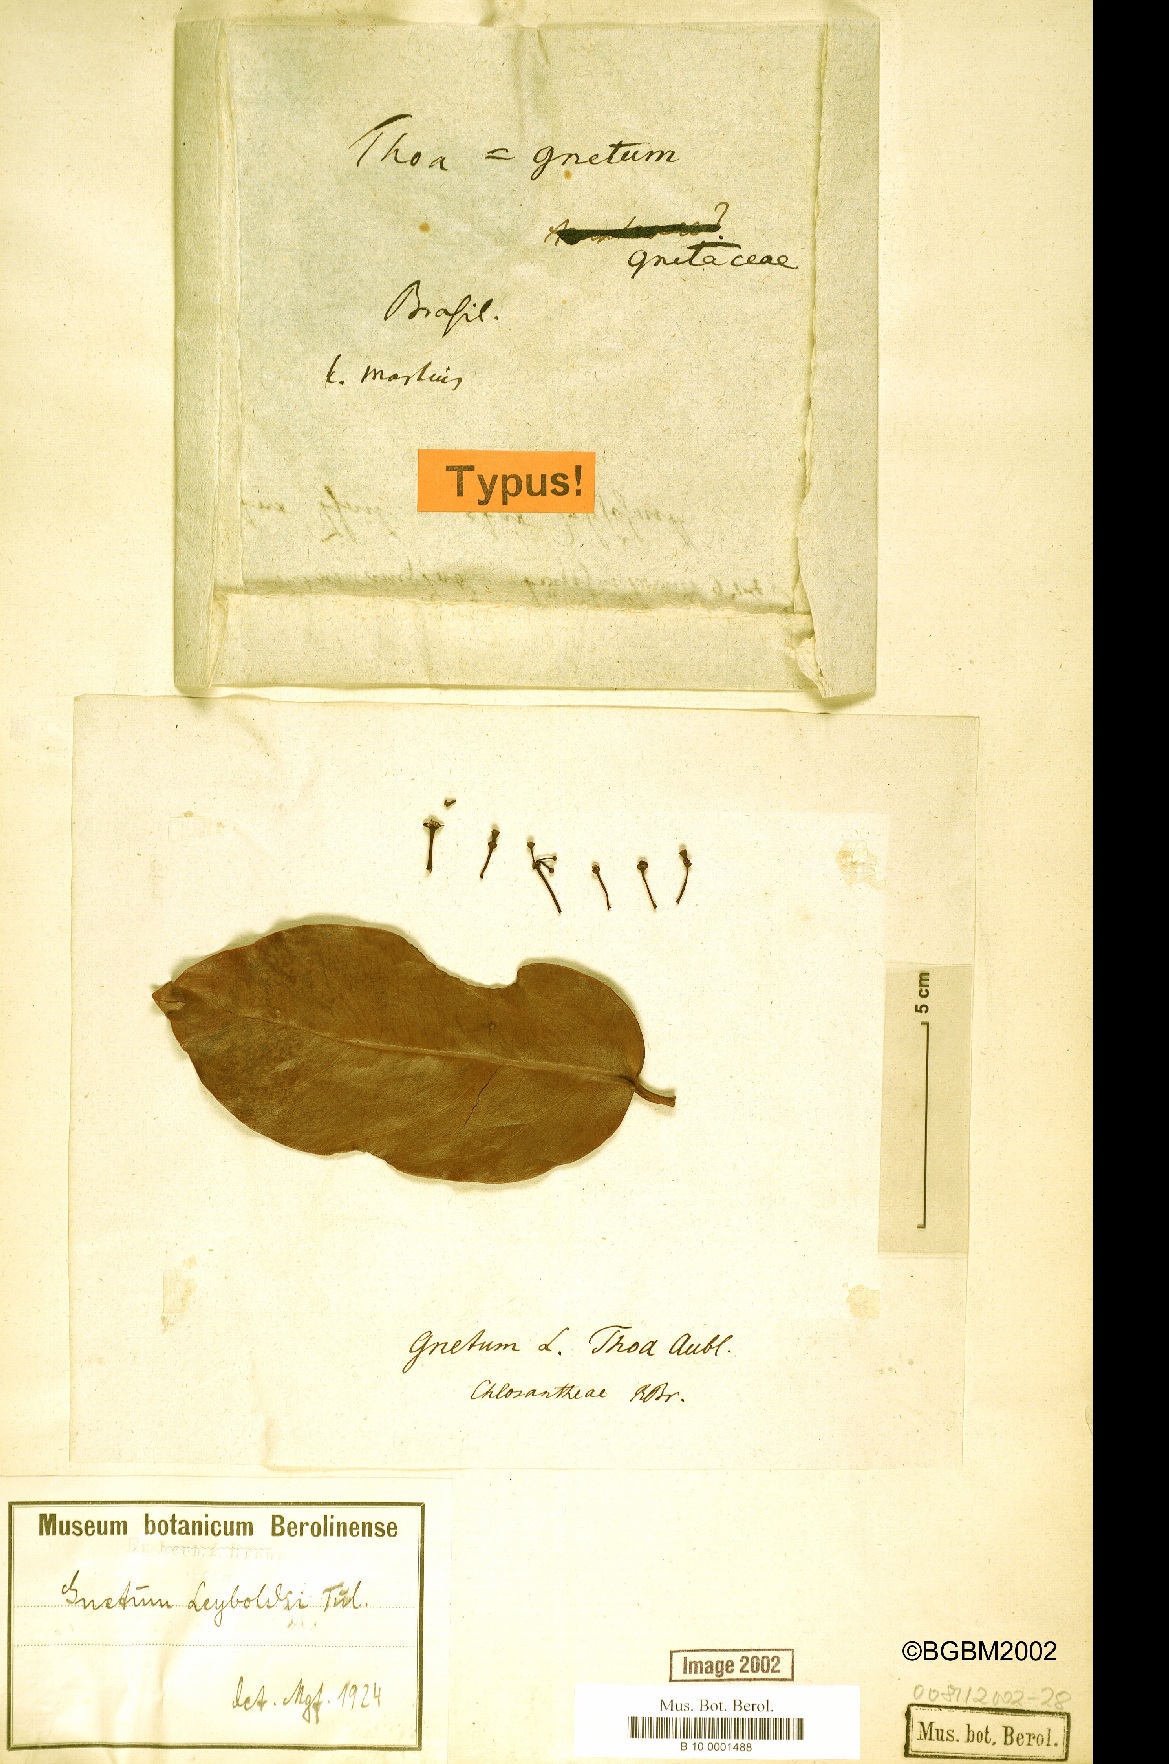 Thoa = gnetum
gnetaceae
Brasil.
Martius
Typus!
5 cm
Gnetum L. Thoa Aubl.
Chlosantheae RBr.
Museum botanicum Berolinense
Gnetum Leyboldi Tul.
det. Mgf. 1924
©BGBM2002
Image 2002
008712002-28
Mus. Bot. Berol.
B 10 0001488
Mus. bot. Berol.